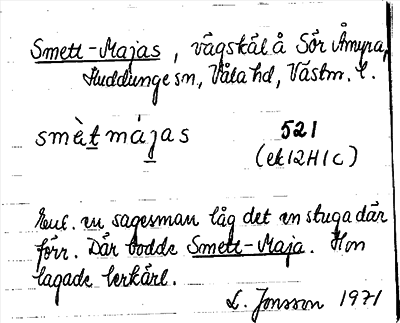 Smett-Majas, vägskäl å Sör Åmyra,
Huddunge sn, Våla hd, Västm. l.
smètmájas 521
(ek12H1c)
Enl. en sagesman låg det en stuga där
förr. Där bodde Smett-Maja. Hon
lagade lerkärl.
L. Jonsson 1971